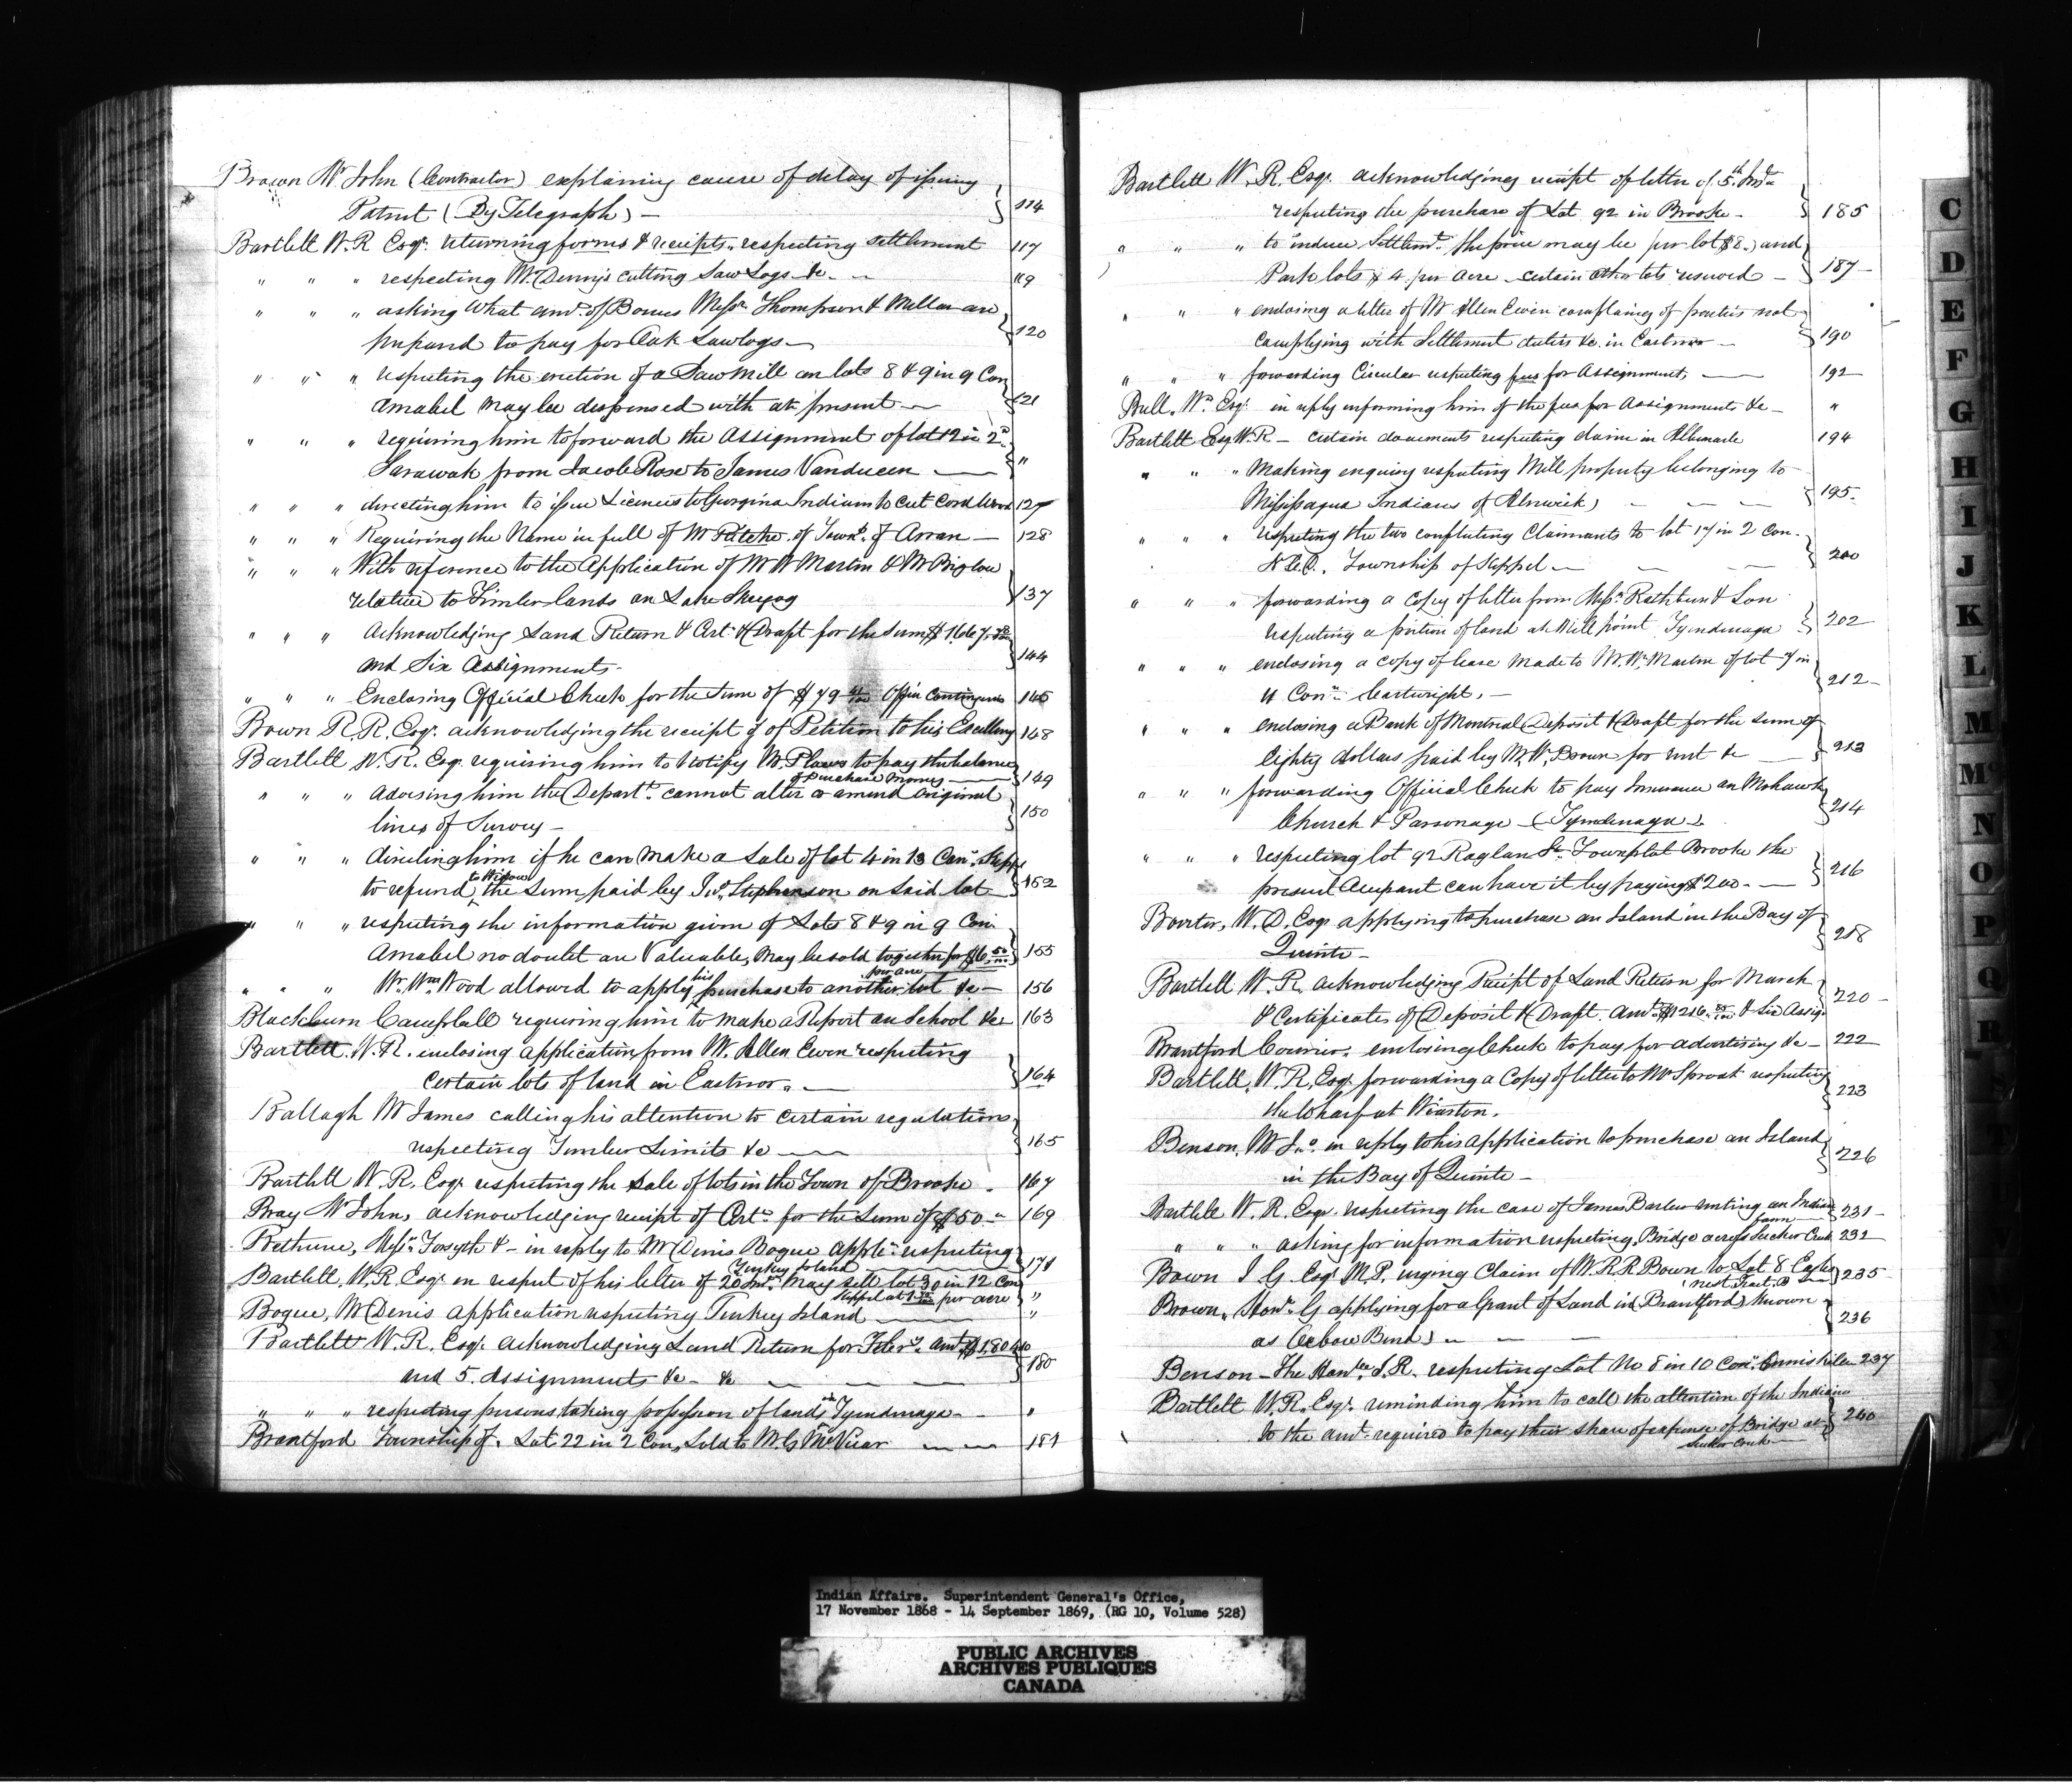 Brown Mr John (Contractor) explaining cause of delay of issuing
Patent (By Telegraph) — 114
Bartlett W. R. Esqr. returning forms & receipts respecting settlement 117
" " " respecting Mr. Denny's cutting Saw Logs &c. — 119
" " " asking What amt. of Bonus Messrs Thompson & Millar are
prepared to pay for Oak Sawlogs — 120
" " " respecting the erection of a Saw Mill on lots 8 & 9 in 9 Con
Amabel may be dispensed with at present — 121
" " " requiring him to forward the Assignment of lot 12 in 2d.
Sarawak from Jacob Rose to James Vanduzen — "
" " " directing him to issue Licences to Georgina Indians to cut Cord Wood 127
" " " Requiring the Name in full of Mr of Townp. of Arran — 128
" " " With reference to the Application of Mr W Martin & Mr Biglow
relative to Timber lands on Lake Skugog 137
" " " Acknowledging Land Return & Cert. & Draft for the Sum
and Six Assignments - 144
" " " Enclosing Official Check for the Sum of $ 79 Office Contingencies 145
Bown R. R. Esqr. acknowledging the receipt of Petition to his Excellency 148
Bartlett W. R. Esqr. requiring him to Notify Mr. Plaws to pay the balance
of purchase money — 149
" " " Advising him the Departt. cannot alter or amend Original
lines of Survey — 150
" " " directing him if he can make a Sale of lot 4 in 13 Con. Keppel
to refund to Widow the Sum paid by Jno. Stephenson on said lot 152
" " " respecting the information given of Lots 8 & 9 in 9 Con.
Amabel no doubt are Valuable, may be sold together for $6 50/100
per acre 155
" " " Mr. Wm Wood allowed to apply his purchase to another lot &c — 156
Blackburn Campbell requiring him to make a Report on School &c 163
Bartlett. W. R. enclosing application from W. Allen Ewen respecting
Certain lots of land in Eastnor. — 164
Ballagh Mr James calling his attention to certain regulations
respecting Timber Limits &c — 165
Bartlett W. R. Esqr. respecting the sale of lots in the Town of Brooke. 167
Bray Mr John, acknowledging receipt of Cert. for the Sum of $50 — 169
Bethune, Messrs. Forsyth & — in reply to Mr Denis Bogue appln. respecting
Turkey Island — 171
Bartlett, W. R. Esqr. in respect of his letter of 20 Inst. May sell lot 30 in 12 Con
Keppel at per acre "
Bogue, Mr Denis application respecting Turkey Island — "
Bartlett W. R. Esqr. Acknowledging Land Return for Febry. amt.
and 5. Assignments &c — &c 180
" " " respecting persons taking possession of lands in Tyendinaga — "
Brantford Township of. Lot 22 in 2 Con, Sold to M. G McVicar — 181
Bartlett W. R. Esqr. acknowledging receipt of letter of 5th Inst.
respecting the purchase of Lot 92 in Brooke — 185
" " " to induce Settlemt. the price may be per lot $8.) and
Park lots $ 4 per acre — certain other lots reserved — 187
" " " enclosing a letter of Mr Allen Ewen complaining of parties not
Complying with Settlement duties &c. in Eastnor — 190
" " " forwarding Circular respecting fees for Assignment, — 192
Bull, Wm. Esqr. in reply informing him of the fees for Assignments &c — "
Bartlett Esq W. R — certain documents respecting claim in Albemarle 194
" " " Making enquiry respecting Mill property belonging to
Mississagua Indians of Alnwick) 195
" " " respecting the two conflicting Claimants to lot 17 in 2 Con.
Township of Keppel — 200
" " " forwarding a Copy of letter from Messrs. Rathbun & Son
respecting a portion of land at Mill point Tyendinaga 202
" " " enclosing a copy of lease made to Mr. Wm. Martin of lot 7 in
4 Conn. Cartwright, — 212
" " " enclosing a Bank of Montreal Deposit & Draft for the sum of
eighty dollars paid by Mr. W. Brown for rent &c — 213
" " " forwarding Official Check to pay Insurance on Mohawk
Church & Parsonage — (Tyendinaga) 214
" " " respecting lot 92 Raglan St. Townplot Brooke the
present Occupant can have it by paying $200 — 216
W. D. Esqr applying to purchase an Island in the Bay of
Quinte — 218
Bartlett W. R. acknowledging Receipt of Land Return for March
& Certificates of Deposit & Draft. Amt. $1216 & Six Assigs. 220
Brantford Courier. enclosing Check to pay for advertising &c — 222
Bartlett, W. R, Esqr. forwarding a Copy of letter to Mr Sproat respecting
the Wharf at Wiarton. 223
Benson, Mr Jno. in reply to his application to purchase an Island
in the Bay of Quinte — 226
Bartlett W. R. Esqr. respecting the case of James Barber renting an Indian
farm 231
" " " asking for information respecting Bridge across Sucker Creek 232
Bown I G Esqr. M.P. urging Claim of W. R R Bown to Lot 8 Eagles
nest Tract. B 235
Brown, Honr. G applying for a Grant of Land in (Brantford) known
as Oxbow Bend) 236
Benson — The Honble. J. R. respecting Lot No 8 in 10 Con. Enniskillen 237
Bartlett W. R. Esqr. reminding him to call the attention of the Indians
to the amt. required to pay their share of expense of Bridge at
Sucker Creek 240
C
D
E
F
G
H
I
J
K
L
M
Mc
N
O
P
Q
R
S
Indian Affairs. Superintendent General's Office,
17 November 1868 - 14 September 1869, (RG 10, Volume 528)
PUBLIC ARCHIVES
ARCHIVES PUBLIQUES
CANADA